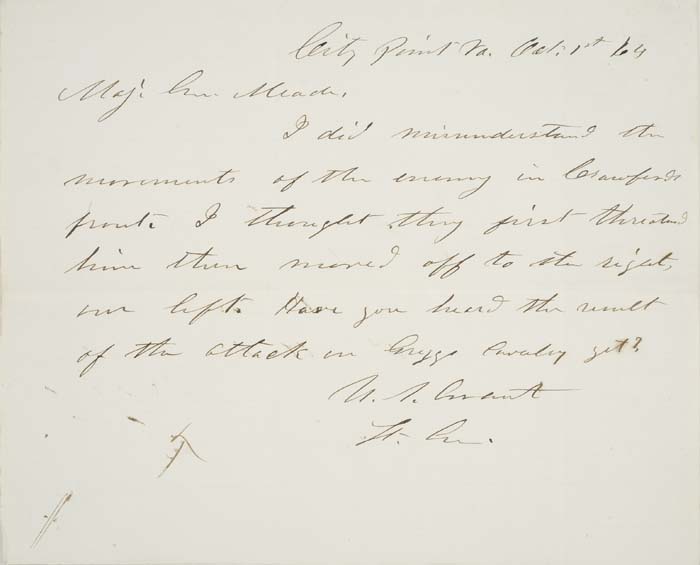 City Point Va. Oct. 1st 64
Maj. Gen. Meade,
I did misunderstand the
movements of the enemy in Crawfords
front. I thought they first threatend
him then moved off to the right,
our left. Have you heard the result
of the attack on Greggs Cavalry yet?
U. S. Grant
Lt. Gn.